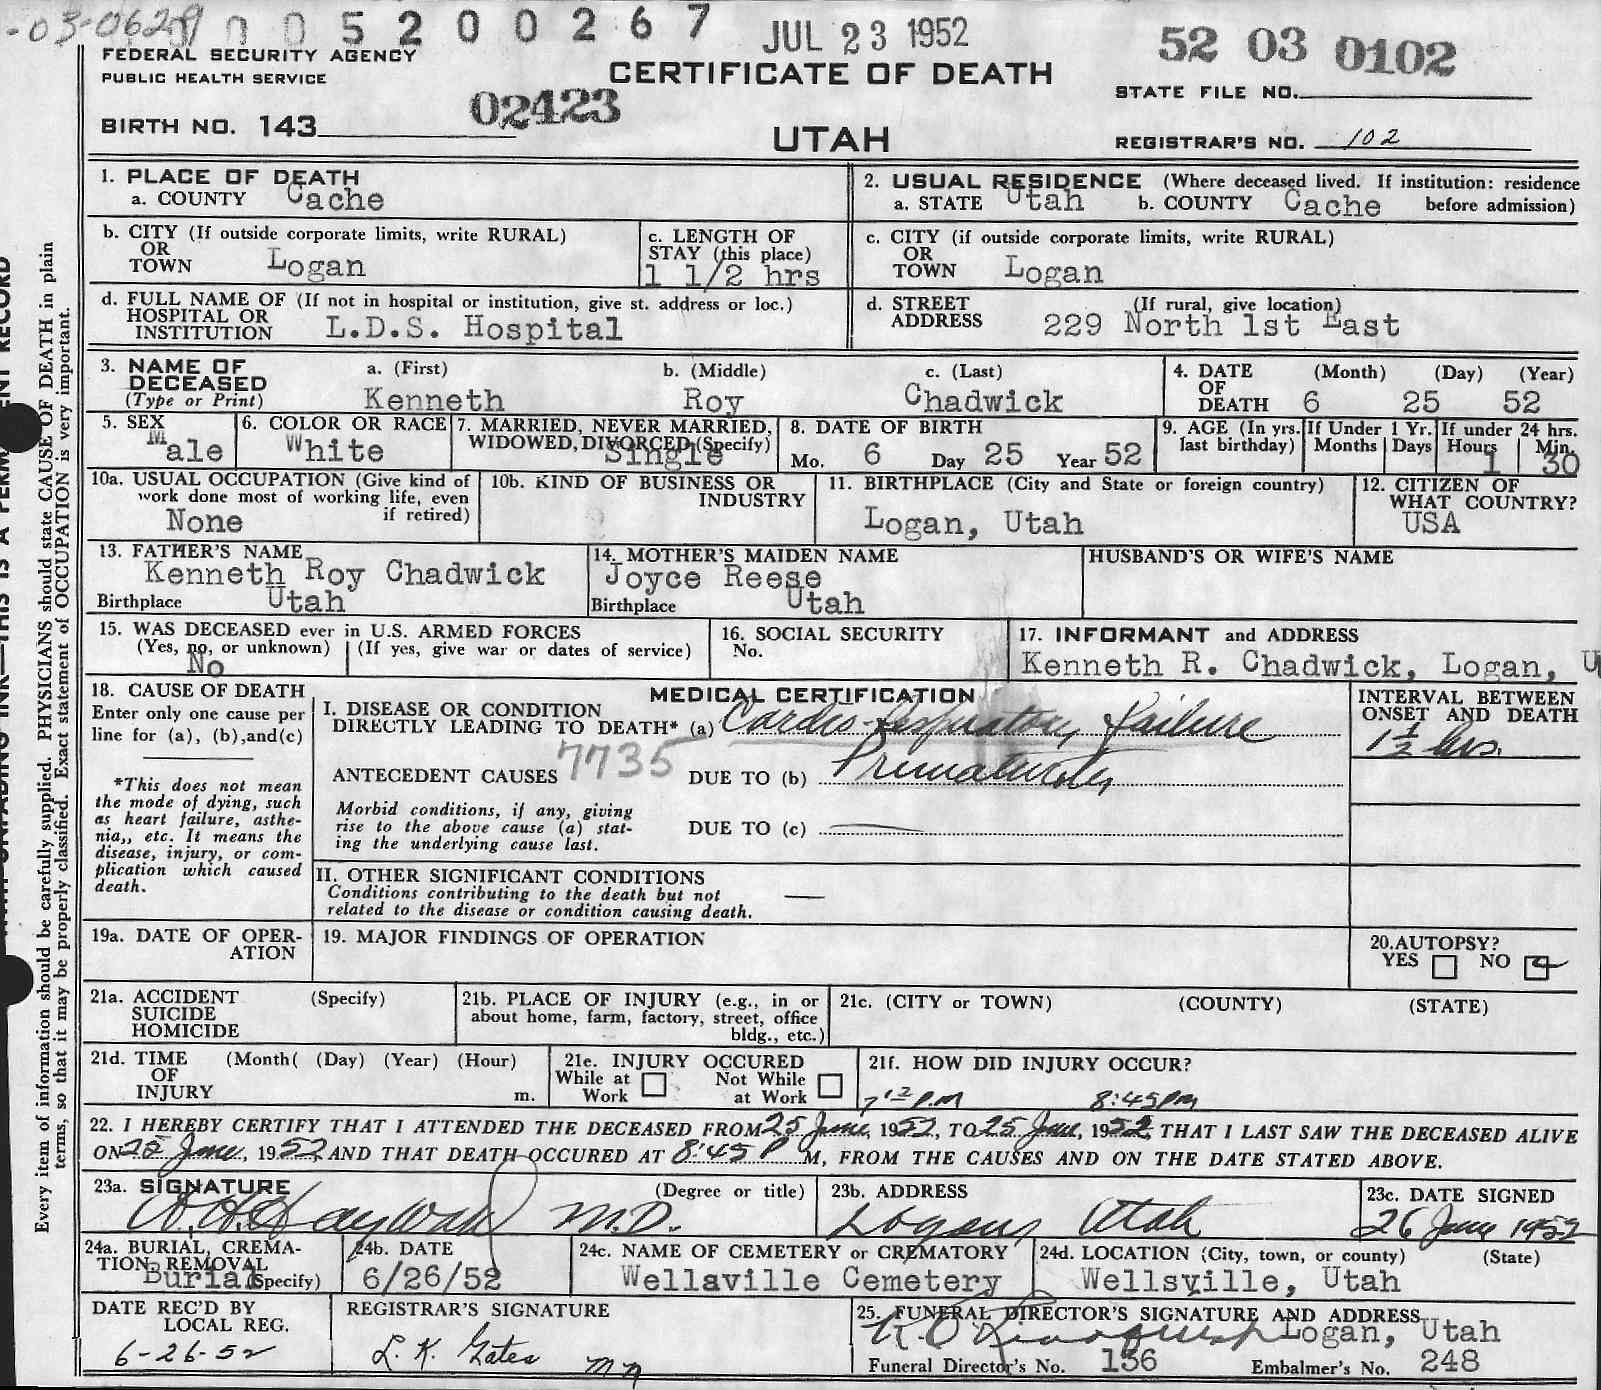 -03-0629 0 0 5 2 0 0 2 6 7 JUL 23 1952 52 03 0102
FEDERAL SECURITY AGENCY
PUBLIC HEALTH SERVICE
CERTIFICATE OF DEATH
STATE FILE NO.
02423
BIRTH NO. 143
UTAH
REGISTRAR'S NO. 102
1. PLACE OF DEATH
a. COUNTY Cache
2. USUAL RESIDENCE (Where deceased lived. If institution: residence
a. STATE Utah b. COUNTY Cache before admission)
b. CITY (If outside corporate limits, write RURAL)
OR
TOWN Logan
c. LENGTH OF
STAY (this place)
1 1/2 hrs
c. CITY (if outside corporate limits, write RURAL)
OR
TOWN Logan
d. FULL NAME OF (If not in hospital or institution, give st. address or loc.)
HOSPITAL OR
INSTITUTION L.D.S. Hospital
d. STREET (If rural, give location)
ADDRESS 229 North 1st East
3. NAME OF DECEASED
(Type or Print)
a. (First) b. (Middle) c. (Last)
Kenneth Roy Chadwick
4. DATE OF DEATH
(Month) (Day) (Year)
6 25 52
5. SEX
Male
6. COLOR OR RACE
White
7. MARRIED, NEVER MARRIED,
WIDOWED, DIVORCED (Specify)
Single
8. DATE OF BIRTH
Mo. 6 Day 25 Year 52
9. AGE (In yrs. last birthday)
If Under 1 Yr. Months Days
If under 24 hrs. Hours Min.
1 30
10a. USUAL OCCUPATION (Give kind of
work done most of working life, even
if retired)
None
10b. KIND OF BUSINESS OR
INDUSTRY
11. BIRTHPLACE (City and State or foreign country)
Logan, Utah
12. CITIZEN OF
WHAT COUNTRY?
USA
13. FATHER'S NAME
Kenneth Roy Chadwick
Birthplace Utah
14. MOTHER'S MAIDEN NAME
Joyce Reese
Birthplace Utah
HUSBAND'S OR WIFE'S NAME
15. WAS DECEASED ever in U.S. ARMED FORCES
(Yes, no, or unknown) (If yes, give war or dates of service)
No
16. SOCIAL SECURITY
No.
17. INFORMANT and ADDRESS
Kenneth R. Chadwick, Logan, U
18. CAUSE OF DEATH
Enter only one cause per
line for (a), (b),and(c)
*This does not mean
the mode of dying, such
as heart failure, asthe-
nia,, etc. It means the
disease, injury, or com-
plication which caused
death.
MEDICAL CERTIFICATION
I. DISEASE OR CONDITION
DIRECTLY LEADING TO DEATH* (a) Cardio-Respiratory failure
7735
ANTECEDENT CAUSES DUE TO (b) Prematurity
Morbid conditions, if any, giving
rise to the above cause (a) stat-
ing the underlying cause last.
DUE TO (c)
INTERVAL BETWEEN
ONSET AND DEATH
1½ hrs.
II. OTHER SIGNIFICANT CONDITIONS
Conditions contributing to the death but not
related to the disease or condition causing death.
19a. DATE OF OPER-
ATION
19. MAJOR FINDINGS OF OPERATION
20. AUTOPSY?
YES NO
21a. ACCIDENT (Specify)
SUICIDE
HOMICIDE
21b. PLACE OF INJURY (e.g., in or
about home, farm, factory, street, office
bldg., etc.)
21c. (CITY or TOWN) (COUNTY) (STATE)
21d. TIME (Month( (Day) (Year) (Hour)
OF
INJURY m.
21e. INJURY OCCURED
While at Work Not While at Work
21f. HOW DID INJURY OCCUR?
P.M 8:45PM
22. I HEREBY CERTIFY THAT I ATTENDED THE DECEASED FROM 25 June, 1952, TO 25 June, 1952, THAT I LAST SAW THE DECEASED ALIVE
ON 25 June, 1952 AND THAT DEATH OCCURED AT 8:45 P M, FROM THE CAUSES AND ON THE DATE STATED ABOVE.
23a. SIGNATURE (Degree or title)
M.D.
23b. ADDRESS
Logan, Utah
23c. DATE SIGNED
26 June 1952
24a. BURIAL, CREMA-
TION, REMOVAL
Burial (Specify)
24b. DATE
6/26/52
24c. NAME OF CEMETERY or CREMATORY
Wellaville Cemetery
24d. LOCATION (City, town, or county) (State)
Wellsville, Utah
DATE REC'D BY
LOCAL REG.
6-26-52
REGISTRAR'S SIGNATURE
L. K. Gates
25. FUNERAL DIRECTOR'S SIGNATURE AND ADDRESS
Logan, Utah
Funeral Director's No. 136 Embalmer's No. 248
Every item of information should be carefully supplied. PHYSICIANS should state CAUSE OF DEATH in plain
terms, so that it may be properly classified. Exact statement of OCCUPATION is very important.